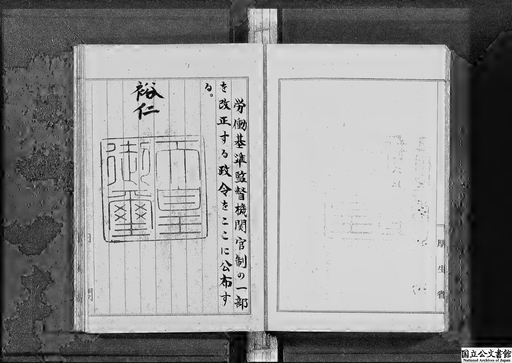 労働基準監督機関官制の一部
を改正する政令をここに公布す
る。
裕仁
天皇
御璽
厚生省
国立公文書館
National Archives of Japan